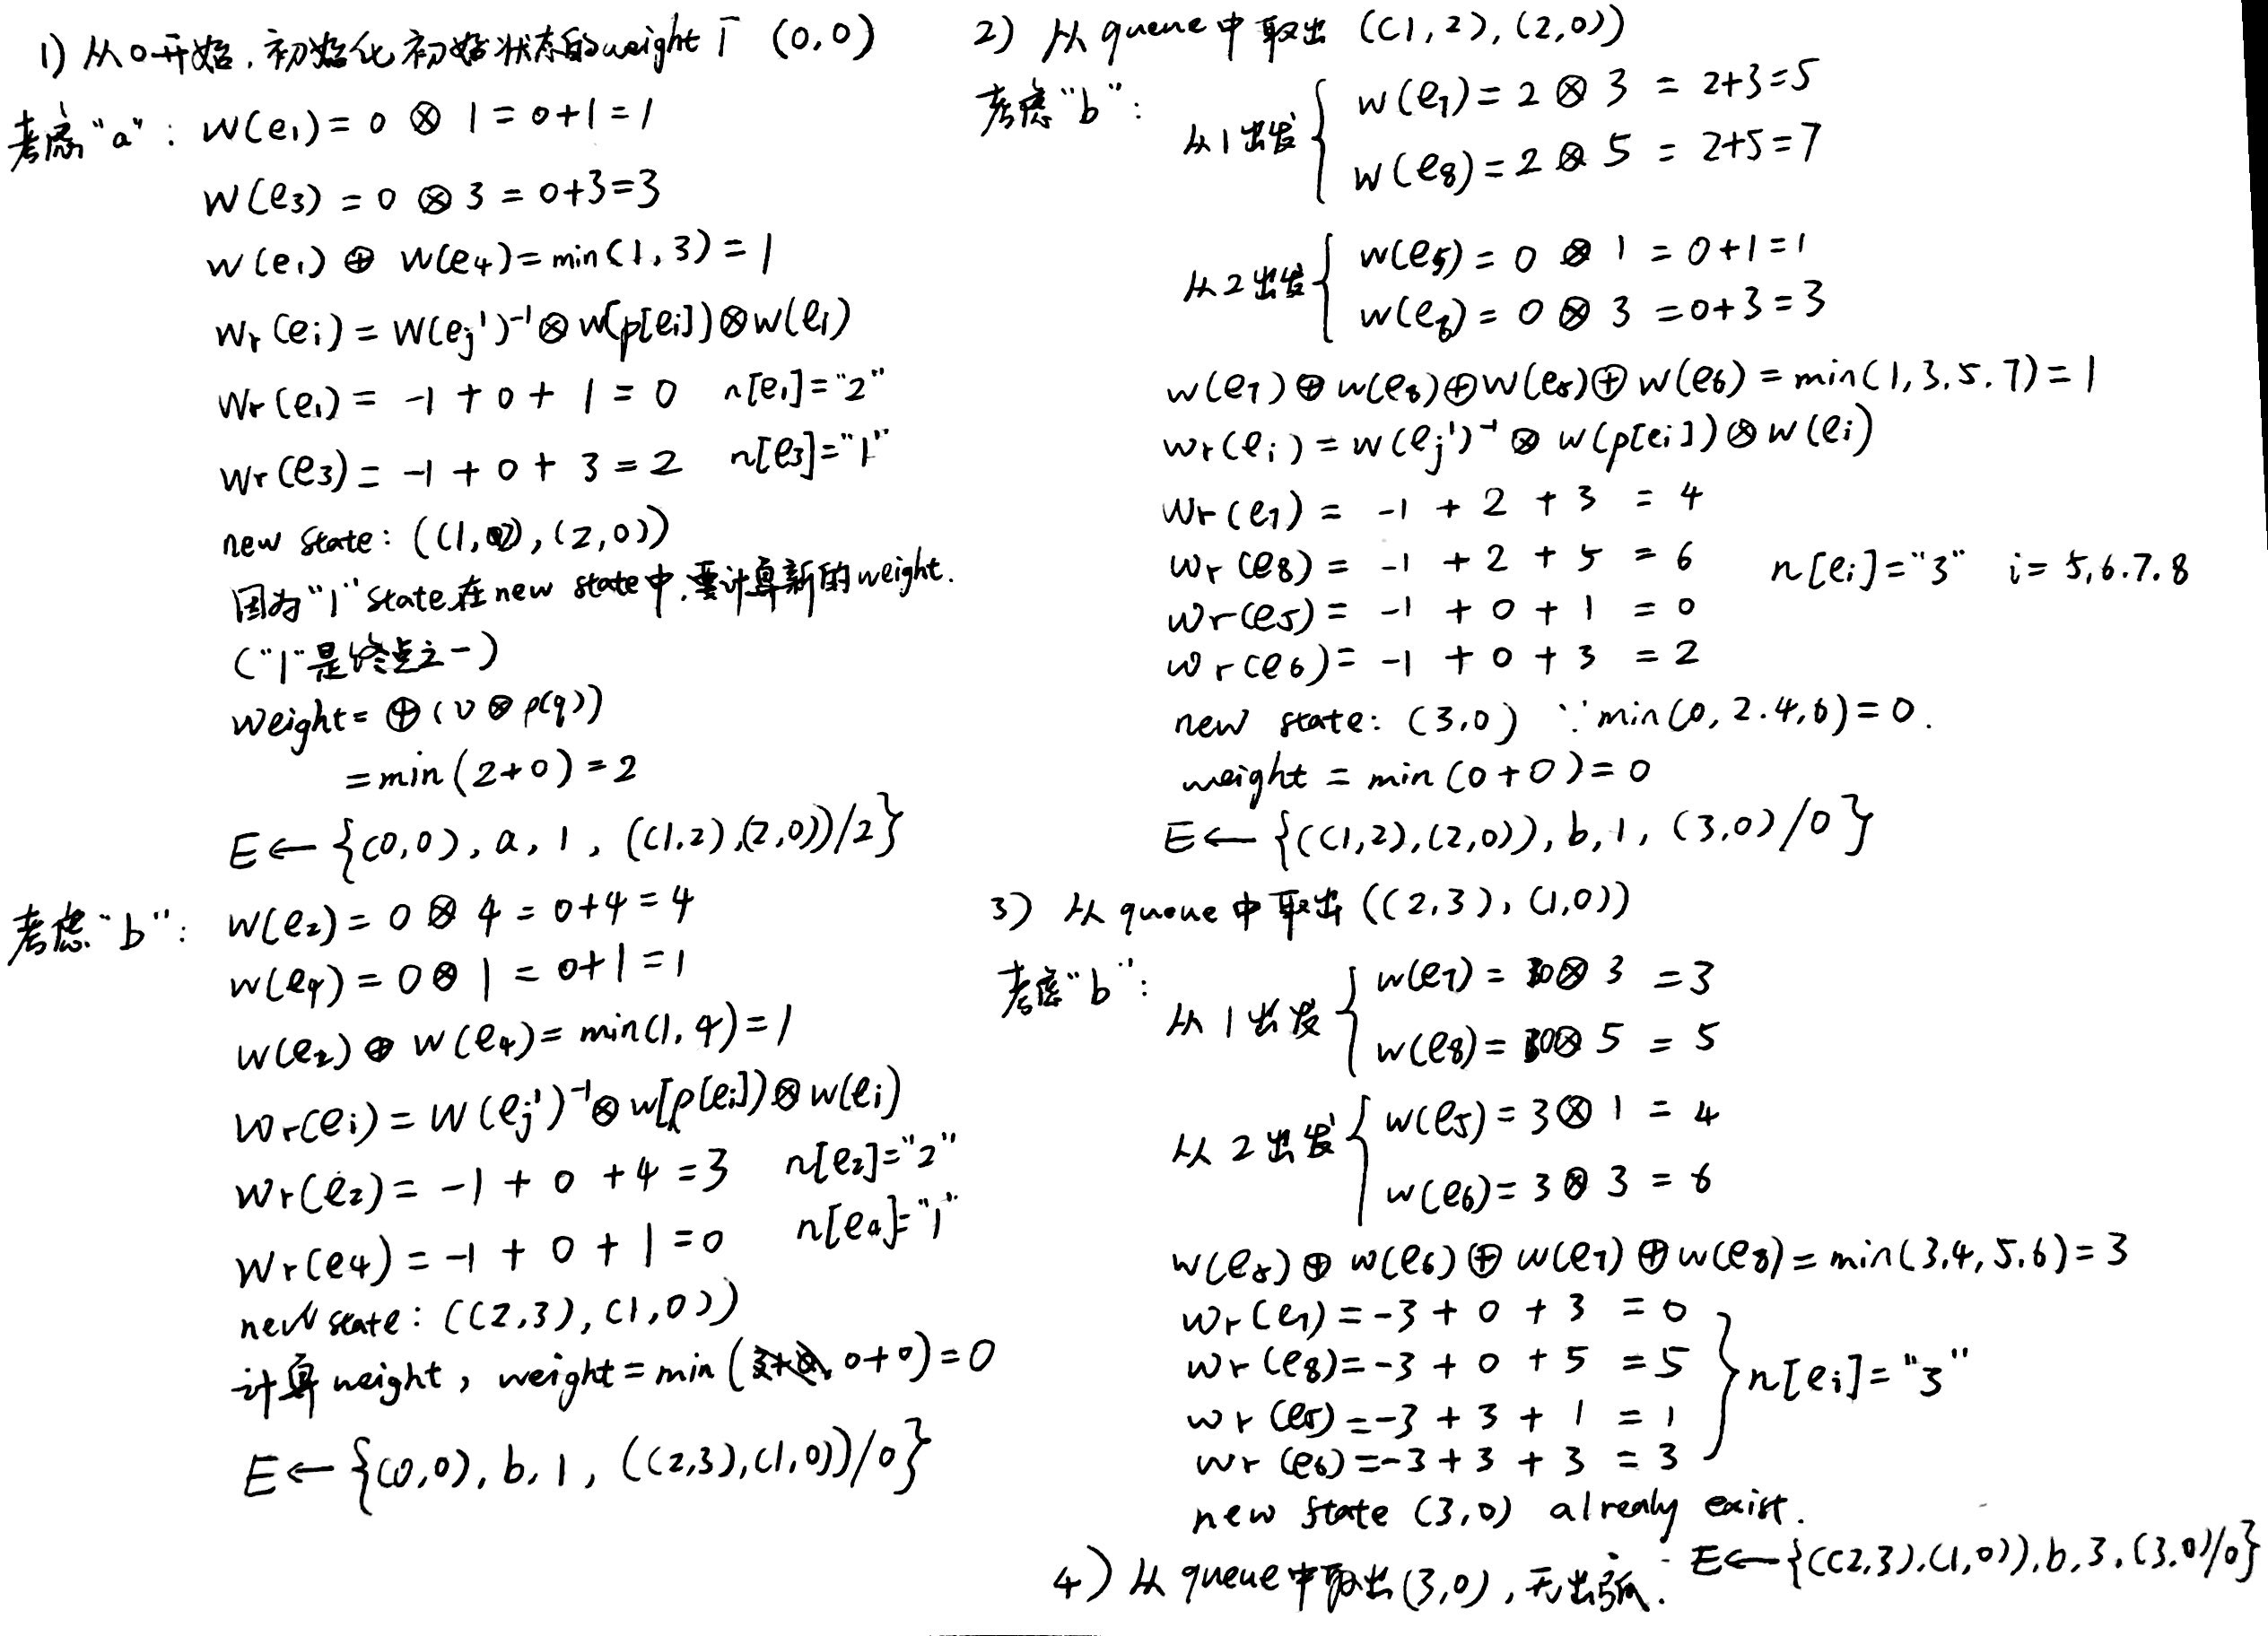 1) 从0开始，初始化初始状态的weight 1̄ (0,0)
考虑"a"： W(e₁) = 0 ⊗ 1 = 0+1 = 1
W(e₃) = 0 ⊗ 3 = 0+3=3
w(e₁) ⊕ w(e₄) = min(1,3) = 1
Wr(ei) = W(ej')⁻¹ ⊗ w(p[ei]) ⊗ w(e₁)
Wr(e₁) = -1 + 0 + 1 = 0 n[e₁]="2"
Wr(e₃) = -1 + 0 + 3 = 2 n[e₃]="1"
new state: ((1,2),(2,0))
因为"1" state 在 new state中，要计算新的weight.
("1"是终点之一)
weight = ⊕(v ⊗ ρ(q))
= min(2+0) = 2
E ← {(0,0), a, 1, ((1,2),(2,0))/2}
考虑"b": W(e₂) = 0 ⊗ 4 = 0+4 = 4
w(e₄) = 0 ⊗ 1 = 0+1 = 1
w(e₂) ⊕ w(e₄) = min(1,4) = 1
Wr(ei) = W(ej')⁻¹ ⊗ w(p[ei]) ⊗ w(ei)
Wr(e₂) = -1 + 0 + 4 = 3 n[e₂]="2"
Wr(e₄) = -1 + 0 + 1 = 0 n[e₄]="1"
new state: ((2,3),(1,0))
计算weight, weight = min(0+0) = 0
E ← {(0,0), b, 1, ((2,3),(1,0))/0}
2) 从queue中取出 ((1,2),(2,0))
考虑"b":
从1出发 { w(e₇) = 2 ⊗ 3 = 2+3=5
w(e₈) = 2 ⊗ 5 = 2+5=7
从2出发 { w(e₅) = 0 ⊗ 1 = 0+1=1
w(e₆) = 0 ⊗ 3 = 0+3=3
w(e₇) ⊕ w(e₈) ⊕ w(e₅) ⊕ w(e₆) = min(1,3,5,7) = 1
wr(ei) = w(ej')⁻¹ ⊗ w(p[ei]) ⊗ w(ei)
Wr(e₇) = -1 + 2 + 3 = 4
Wr(e₈) = -1 + 2 + 5 = 6 n[ei]="3" i= 5,6,7,8
Wr(e₅) = -1 + 0 + 1 = 0
wr(e₆) = -1 + 0 + 3 = 2
new state: (3,0) ∵ min(0,2,4,6)=0.
weight = min(0+0) = 0
E ← {((1,2),(2,0)), b, 1, (3,0)/0}
3) 从queue中取出 ((2,3),(1,0))
考虑"b":
从1出发 { w(e₇) = 0 ⊗ 3 = 3
w(e₈) = 0 ⊗ 5 = 5
从2出发 { w(e₅) = 3 ⊗ 1 = 4
w(e₆) = 3 ⊗ 3 = 6
w(e₅) ⊕ w(e₆) ⊕ w(e₇) ⊕ w(e₈) = min(3,4,5,6) = 3
Wr(e₇) = -3 + 0 + 3 = 0
Wr(e₈) = -3 + 0 + 5 = 5 } n[ei]="3"
wr(e₅) = -3 + 3 + 1 = 1
wr(e₆) = -3 + 3 + 3 = 3
new state (3,0) already exist.
E ← {((2,3),(1,0)), b, 3, (3,0)/0}
4) 从queue中取出(3,0), 无出弧.